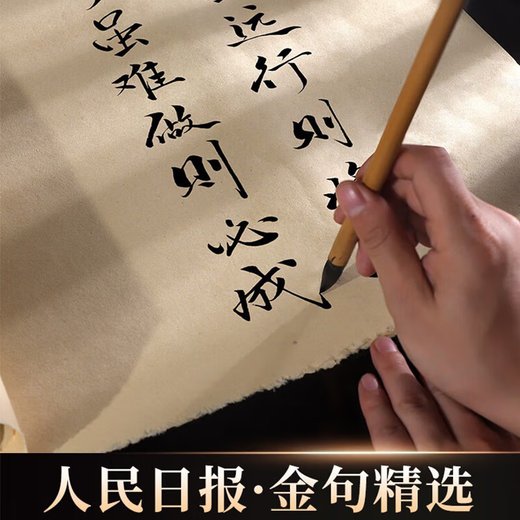 远行则
虽难做则必成
人民日报·金句精选